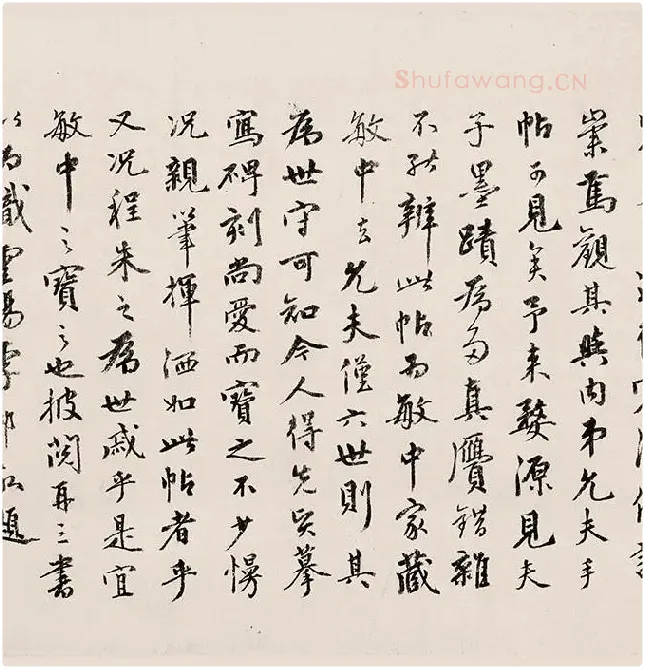 Shufawang.CN
業篤觀其與内弟允夫手
帖可見矣予来婺源見夫
子墨蹟為多真贗錯雜
不能辨此帖為敏中家藏
敏中去允夫僅六世則其
為世守可知今人得先賢摹
寫碑刻尚愛而寶之不少慢
况親筆揮洒如此帖者乎
又况程朱之為世戚乎是宜
敏中之寶之也披閱再三書
以為識雲陽李祁題